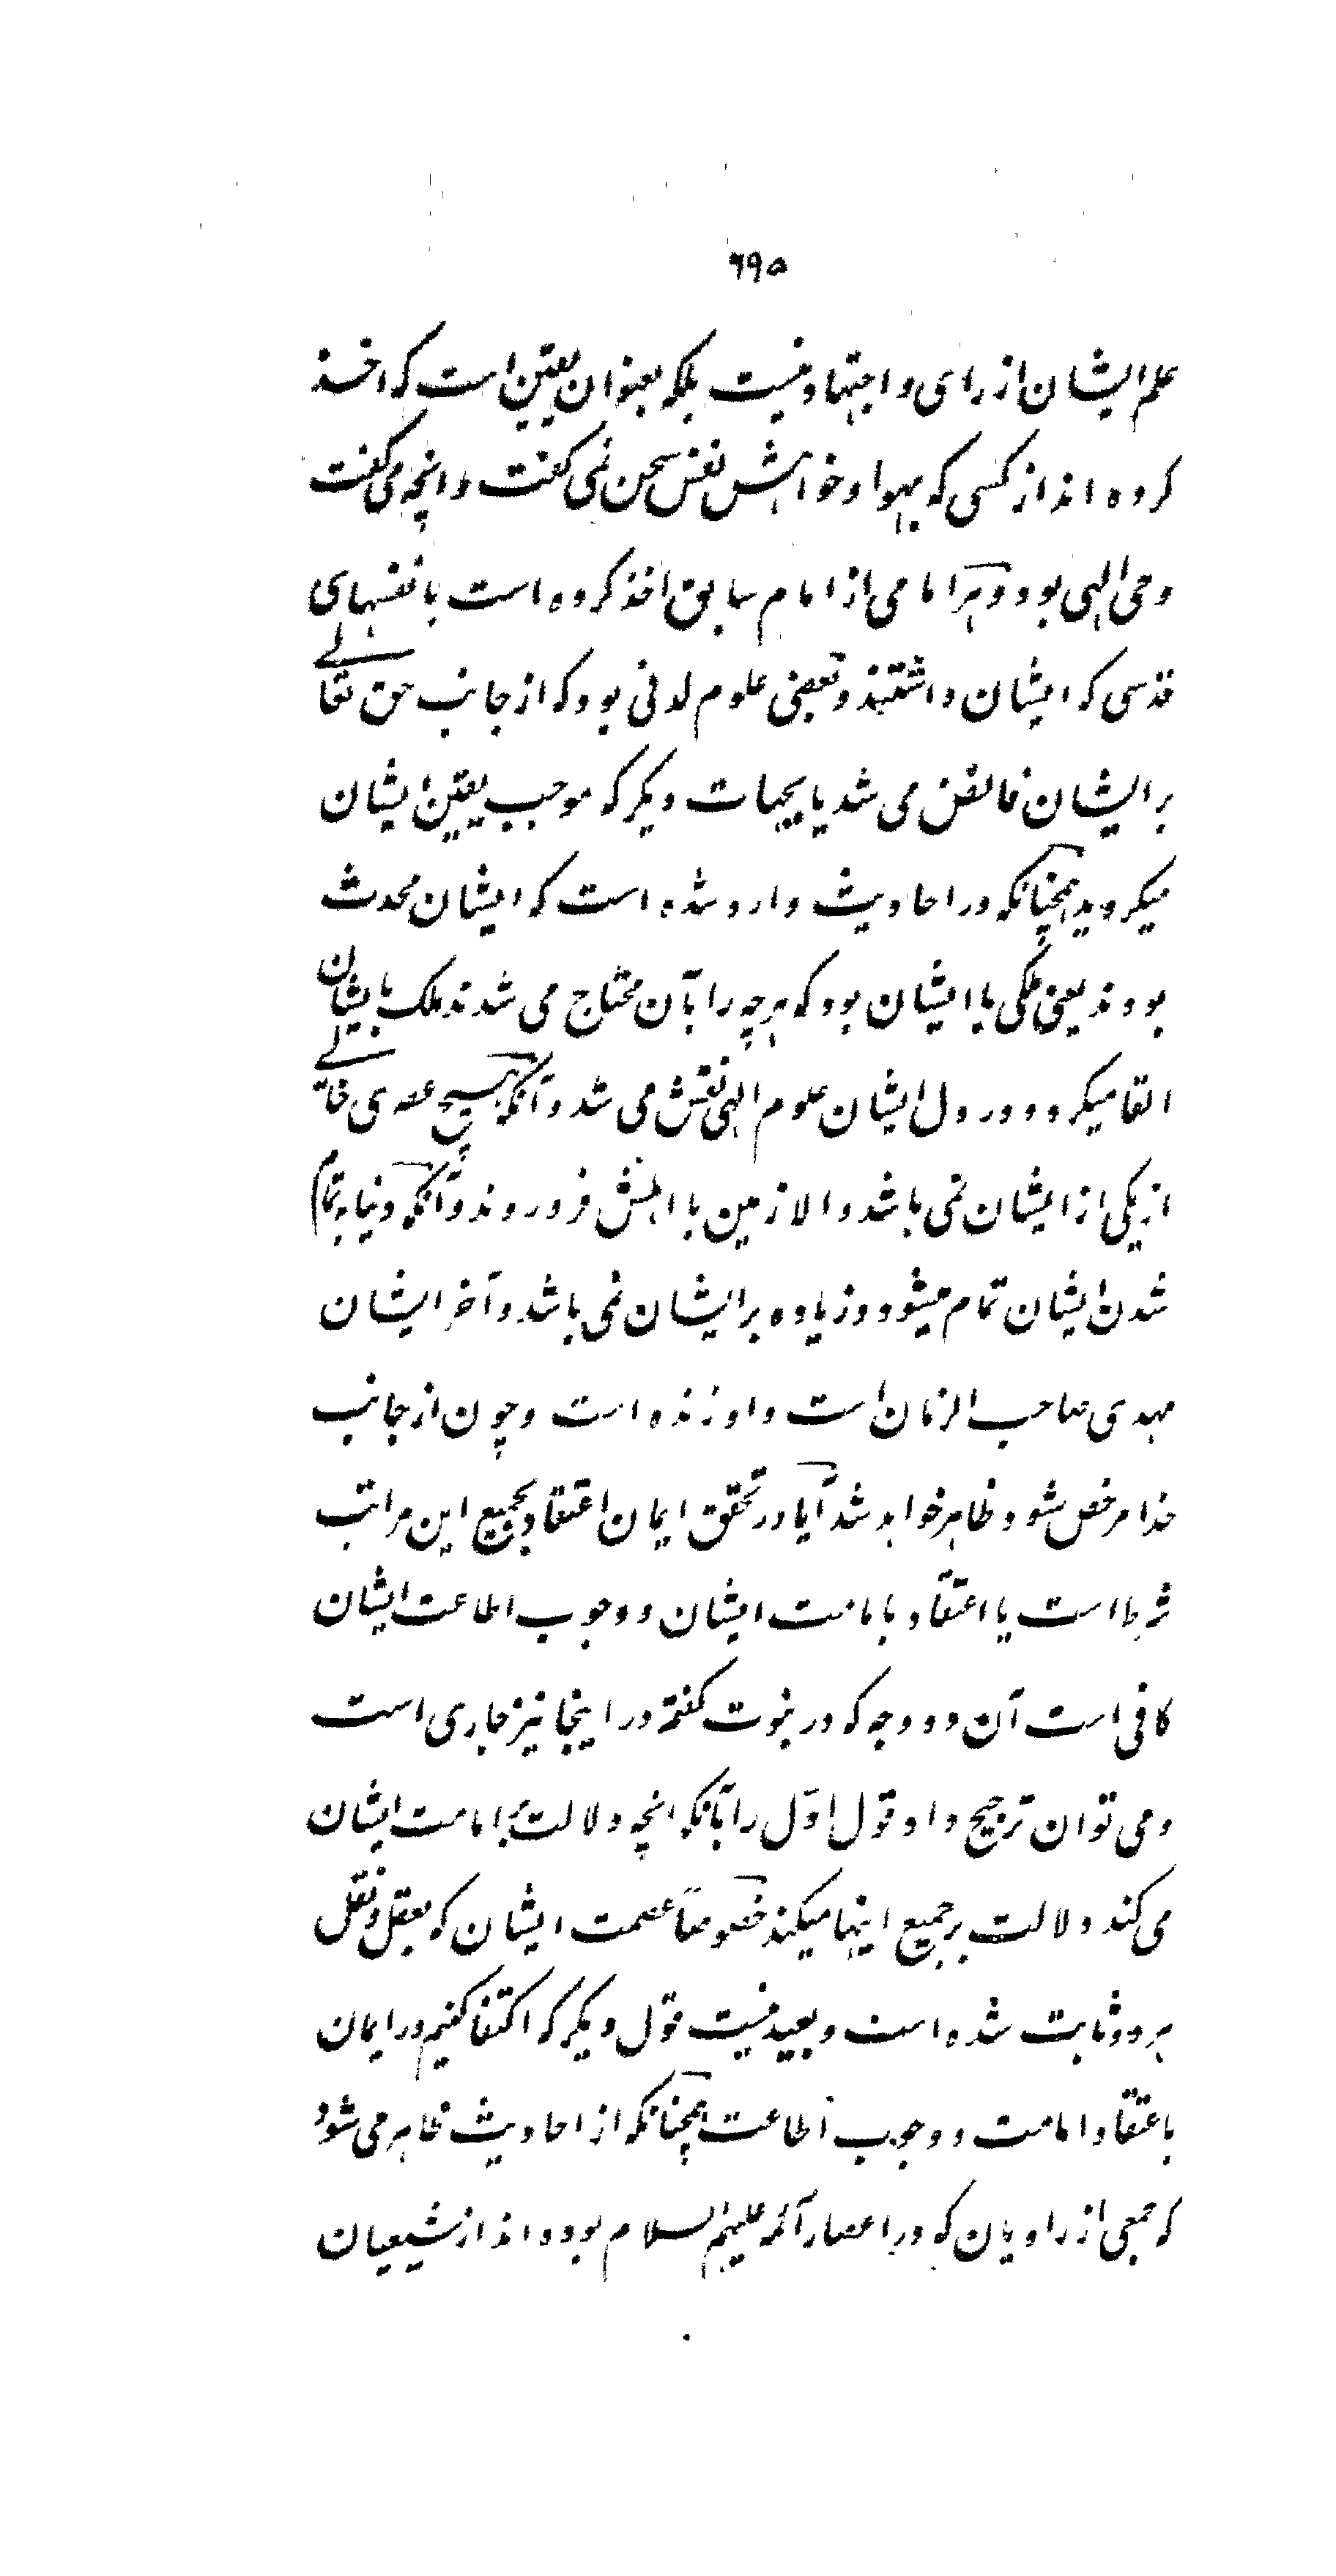 ٦٩٥
علم ایشان از رای و اجتهاد نیست بلکه بعنوان یقین است که اخذ
کرده اند از کسی که بهوا و خواهش نفس سخن نمی گفت و انچه می گفت
وحی الهی بود و هر امامی از امام سابق اخذ کرده است با نفسهای
قدسی که ایشان داشتند و بعضی علوم لدنی بود که از جانب حق تعالے
بر ایشان فائض می شد یا بجهات دیگر که موجب یقین ایشان
میگردید همچنانکه در احادیث وارد شده است که ایشان محدث
بودند یعنی ملکی با ایشان بود که هرچه را بآن محتاج می شدند ملک بایشان
القا میکرد و در دل ایشان علوم الهی نقش می شد و آنکه هیچ عصری خالے
از یکی از ایشان نمی باشد والا زمین با اهلش فرو رود و آنکه دنیا بتمام
شدن ایشان تمام میشود و زیاده بر ایشان نمی باشد و آخر ایشان
مهدی صاحب الزمان است و او زنده است و چون از جانب
خدا مرخص شود ظاهر خواهد شد آیا در تحقق ایمان اعتقاد بجمیع این مراتب
شرط است یا اعتقاد بامامت ایشان و وجوب اطاعت ایشان
کافی است آن دو وجه که در نبوت گفتم در اینجا نیز جاری است
و می توان ترجیح داد قول اوّل را بآنکه انچه دلالت بر امامت ایشان
می کند دلالت بر جمیع اینها میکند خصوصاً عصمت ایشان که بعقل و نقل
هر دو ثابت شده است و بعید نیست قول دیگر که اکتفا کنیم در ایمان
باعتقاد امامت و وجوب اطاعت همچنانکه از احادیث ظاهر می شود
که جمعی از راویان که در اعصار آئمه علیهم السلام بوده اند از شیعیان